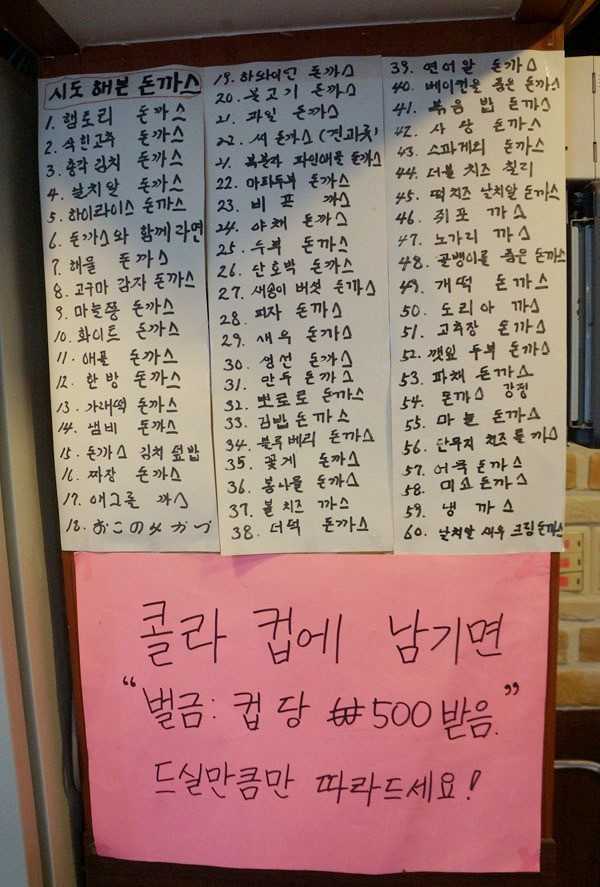 시도 해본 돈까스
1. 햄토리 돈까스
2. 삭힌고추 돈까스
3. 총각김치 돈까스
4. 날치알 돈까스
5. 하이라이스 돈까스
6. 돈까스와 함께 라면
7. 해물 돈까스
8. 고구마 감자 돈까스
9. 마늘쫑 돈까스
10. 화이트 돈까스
11. 애플 돈까스
12. 한방 돈까스
13. 가래떡 돈까스
14. 냄비 돈까스
15. 돈까스 김치 덮밥
16. 짜장 돈까스
17. 애그롤 까스
18. おこのみかつ
19. 하와이안 돈까스
20. 불고기 돈까스
21. 파일 돈까스
22. 씨 돈까스 (견과류)
21. 복분자 파인애플 돈까스
22. 마파두부 돈까스
23. 비프 까스
24. 야채 돈까스
25. 두부 돈까스
26. 단호박 돈까스
27. 새송이 버섯 돈까스
28. 피자 돈까스
29. 새우 돈까스
30. 생선 돈까스
31. 만두 돈까스
32. 뽀로로 돈까스
33. 김밥 돈까스
34. 블루베리 돈까스
35. 꽃게 돈까스
36. 콩나물 돈까스
37. 볼 치즈 까스
38. 더덕 돈까스
39. 연어알 돈까스
40. 베이컨을 품은 돈까스
41. 볶음밥 돈까스
42. 사랑 돈까스
43. 스파게티 돈까스
44. 더블 치즈 칠리
45. 떡치즈 날치알 돈까스
46. 쥐포 까스
47. 노가리 까스
48. 골뱅이를 품은 돈까스
49. 개떡 돈까스
50. 도리아 까스
51. 고추장 돈까스
52. 깻잎 두부 돈까스
53. 파채 돈까스
54. 돈까스 강정
55. 마늘 돈까스
56. 단무지 치즈롤 까스
57. 어묵 돈까스
58. 미소 돈까스
59. 냉 까스
60. 날치알 새우 크림 돈까스
콜라 컵에 남기면
"벌금: 컵 당 ₩500 받음."
드실만큼만 따라드세요!